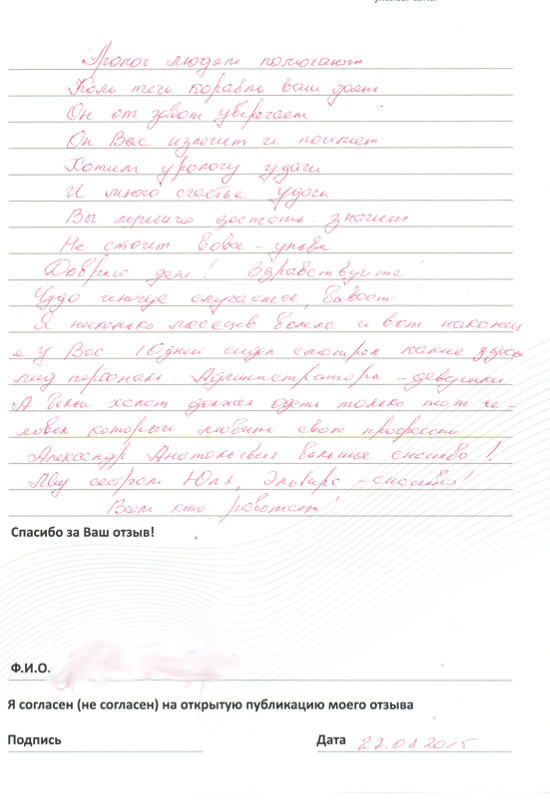 Уролог людям помогают
Коль течь корабль ваш дает
Он от забот уберегает
Он Вас излечит и поймет
Хотим урологу удачи
И много счастье удачи
Вы лучшего достоин - значит
Не стоит вовсе - унывать
Добрый день! Здравствуйте!
Чудо иногда случается, бывает.
Я несколько месяцев болела и вот наконец
я у Вас 10 дней сидел смотрел какие здесь
мед персонал Администраторы - девушки
А белый халат должен одеть только тот че-
ловек который любит свою профессии
Александр Анатольевич большое спасибо!
Мед сестрам Юля, Эльвира - спасибо!
Всем кто работает!
Спасибо за Ваш отзыв!
Ф.И.О.
Я согласен (не согласен) на открытую публикацию моего отзыва
Подпись Дата 27.08.2015